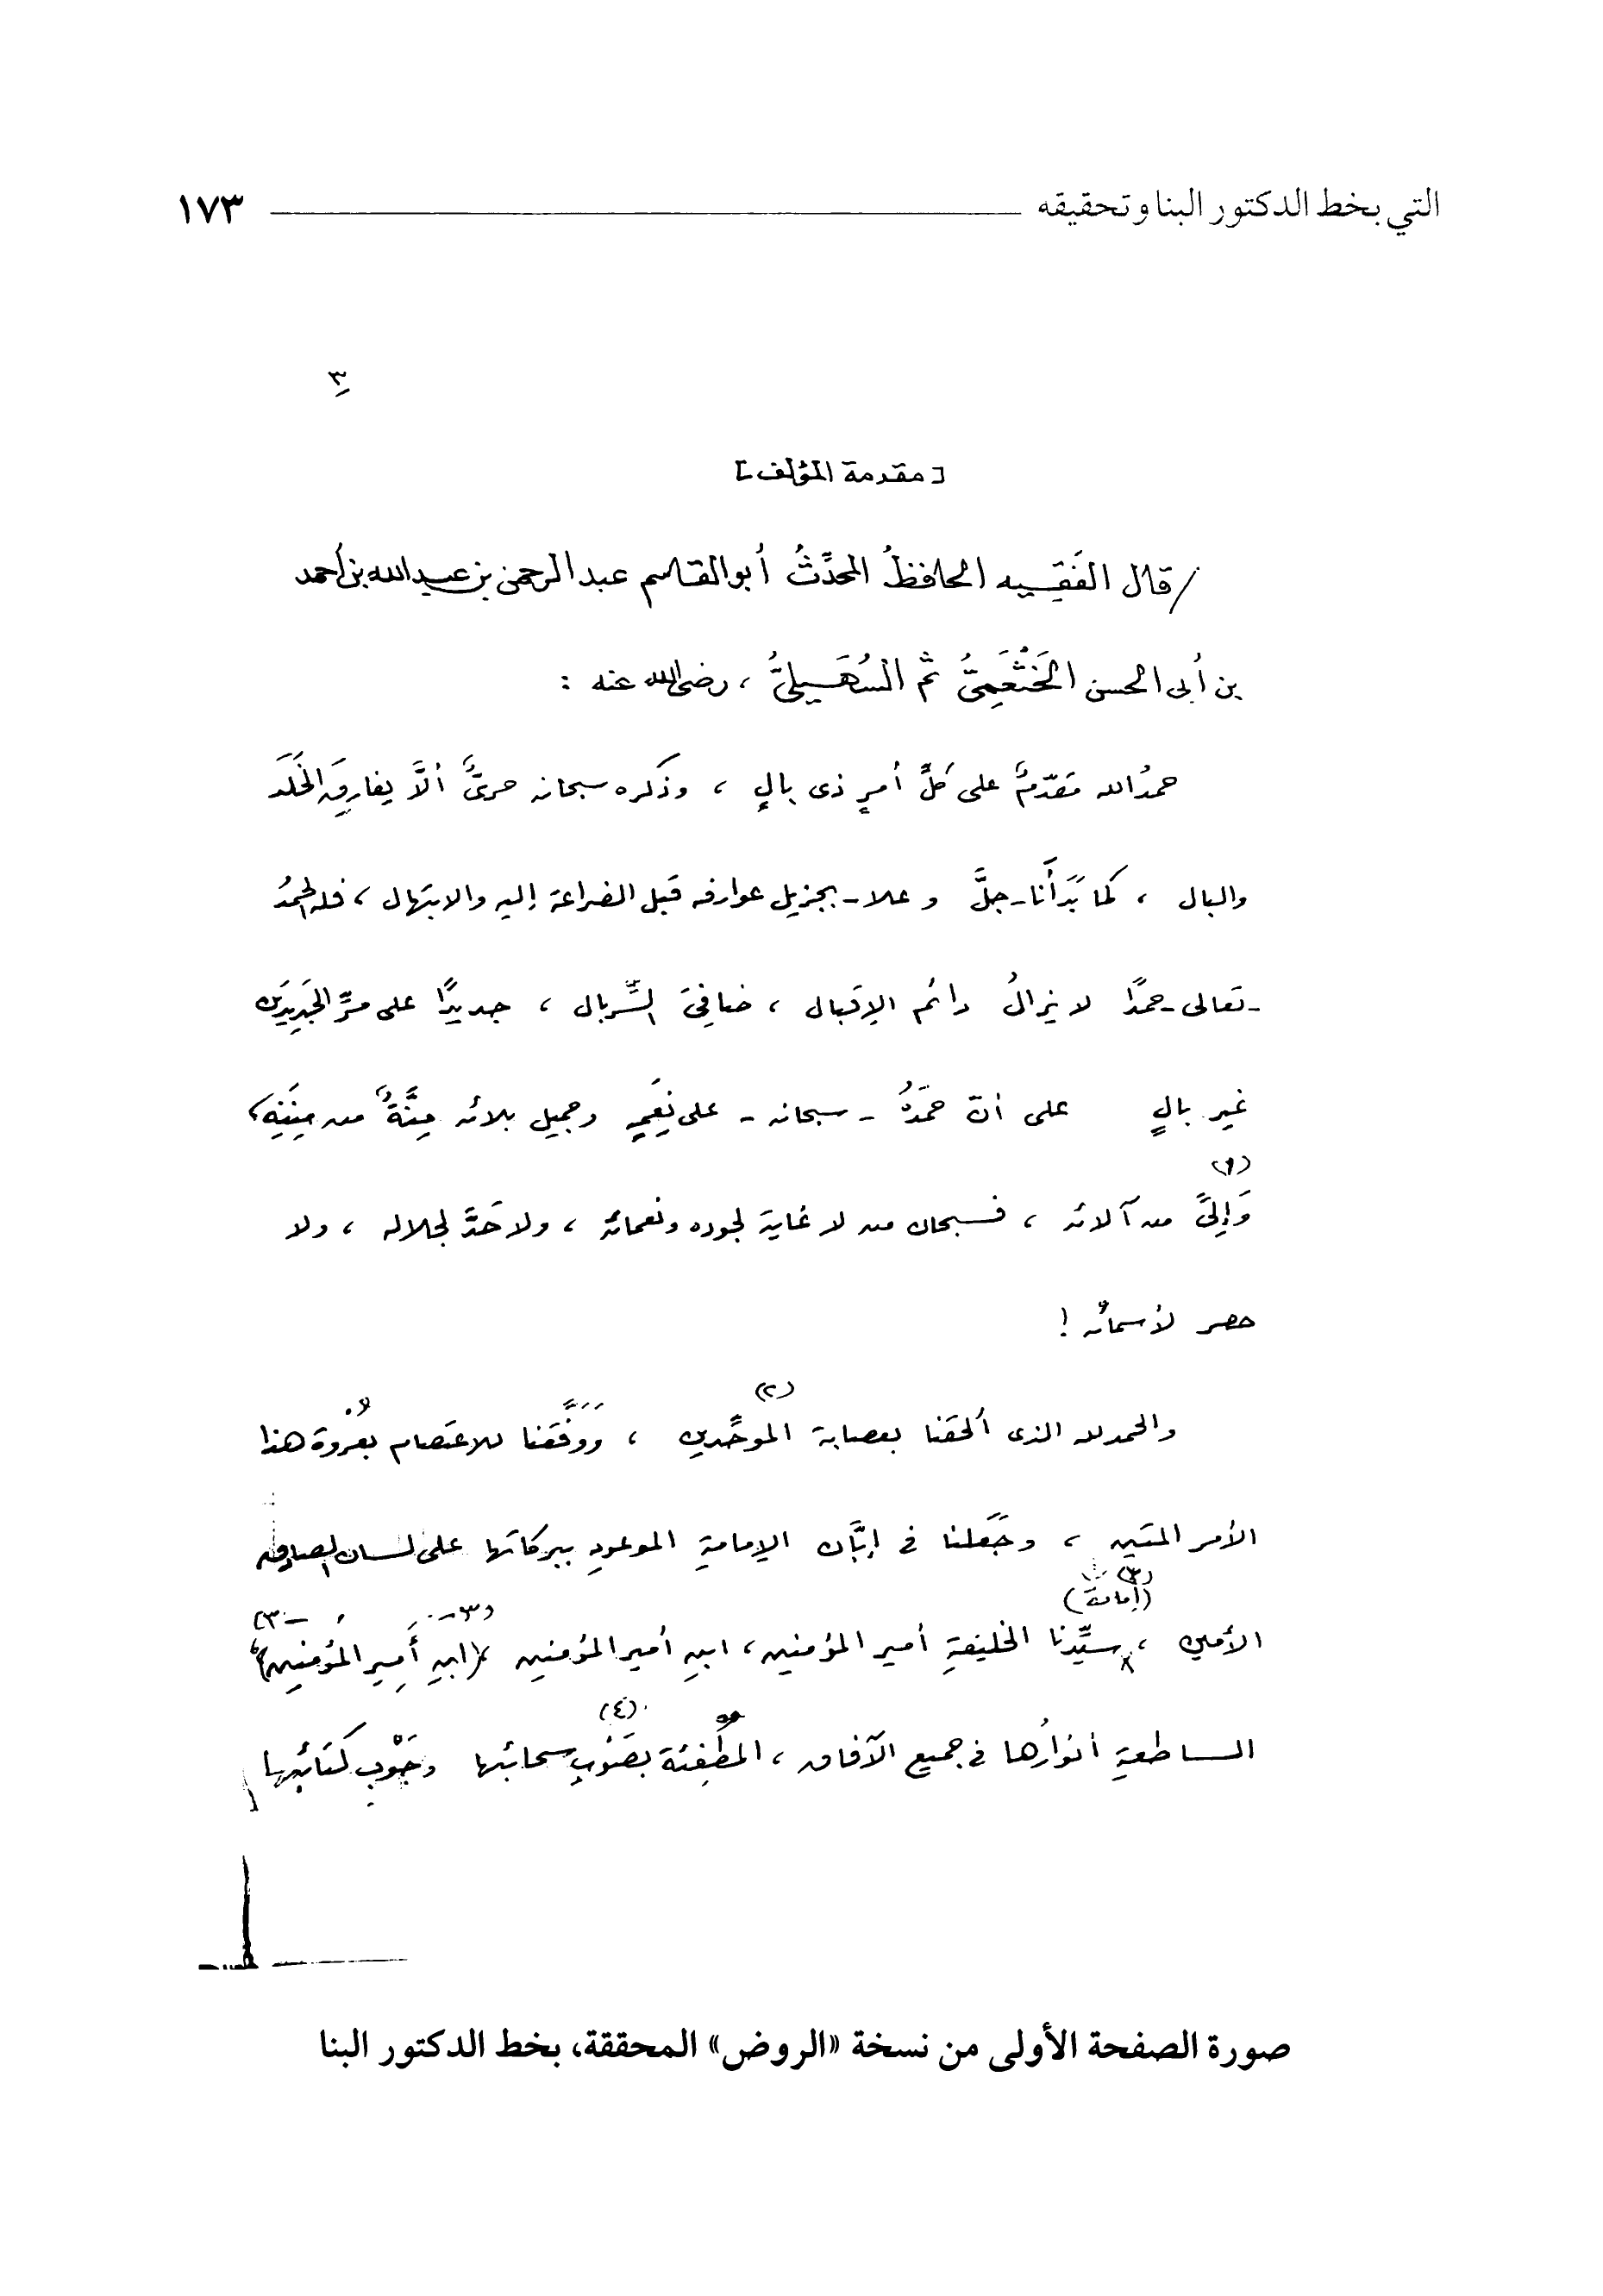 التي بخط الدكتور البنا وتحقيقه ١٧٣
٣
[ مقدمة المؤلف ]
/ قال الفَقِيه الحافظُ المحدِّثُ أبو القاسم عبد الرحمن بن عبد الله بن أحمد
بن أبى الحسن الخَثْعَمِىُّ ثم السُهَيلىُّ ، رضى الله عنه :
حمدُ الله مقدّمٌ على كلِّ أمرٍ ذى بالٍ ، وذكره سبحانه حرىٌّ ألَّا يفارقَ الخَلَد
والبال ، كما بَدَأَنا - جلَّ وعلا - بجزيل عوارفه قبل الضراعة إليه والابتهال ، فله الحمدُ
- تعالى - حمدًا لا يزالُ دائم الإقبال ، ضافِىَ السِّربال ، جديدًا على مرِّ الجَدِيدَين
غير بالٍ على أنّ حمدَهُ - سبحانه - على نِعَمِهِ وجميل بلائه مِنَّةٌ من مِنَنِهِ ،
(١)
وَإِلىً من آلائه ، فسبحان من لا غاية لجوده ونعمائه ، ولا حَدَّ لجلاله ، ولا
حصر لأسمائه !
(٢)
والحمد لله الذى ألحقنا بعصابة الموحِّدين ، وَوَفَّقَنا للاعتصام بعُروة هذا
الأمر المتين ، وجَعَلنا فى إبَّان الإمامةِ الموعودِ ببركاتها على لسان الصادق
(٣)
(إمامة)
(٣- -٣)
الأمين ، سيِّدنا الخليفةِ أمير المؤمنين ، ابنِ أمير المؤمنين ، (ابنِ أَمِير المُؤمنين)
(٤)
الساطعةِ أنوارُها فى جميع الآفاق ، المُطْفِئة بصَوْبِ سحائبها وجَوْبِ كتائبها
صورة الصفحة الأولى من نسخة «الروض» المحققة، بخط الدكتور البنا